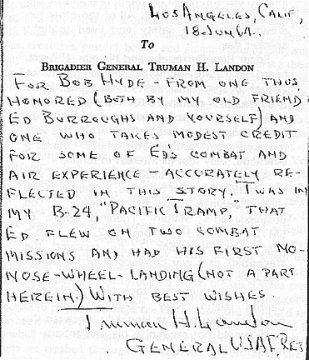 Los Angeles, Calif,
18 Jun 61.
To
BRIGADIER GENERAL TRUMAN H. LANDON
FOR BOB HYDE - FROM ONE THUS
HONORED (BOTH BY MY OLD FRIEND
ED BURROUGHS AND YOURSELF) AND
ONE WHO TAKES MODEST CREDIT
FOR SOME OF ED'S COMBAT AND
AIR EXPERIENCE - ACCURATELY RE-
FLECTED IN THIS STORY. TWAS IN
MY B-24, "PACIFIC TRAMP," THAT
ED FLEW ON TWO COMBAT
MISSIONS AND HAD HIS FIRST NO-
NOSE-WHEEL-LANDING (NOT A PART
HEREIN.) WITH BEST WISHES.
Truman H. Landon
GENERAL USAF, RET